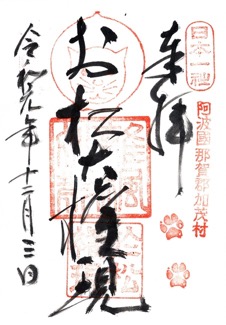 日本一社
阿波國那賀郡加茂村
奉拝
お松大権現
令和元年十二月三日